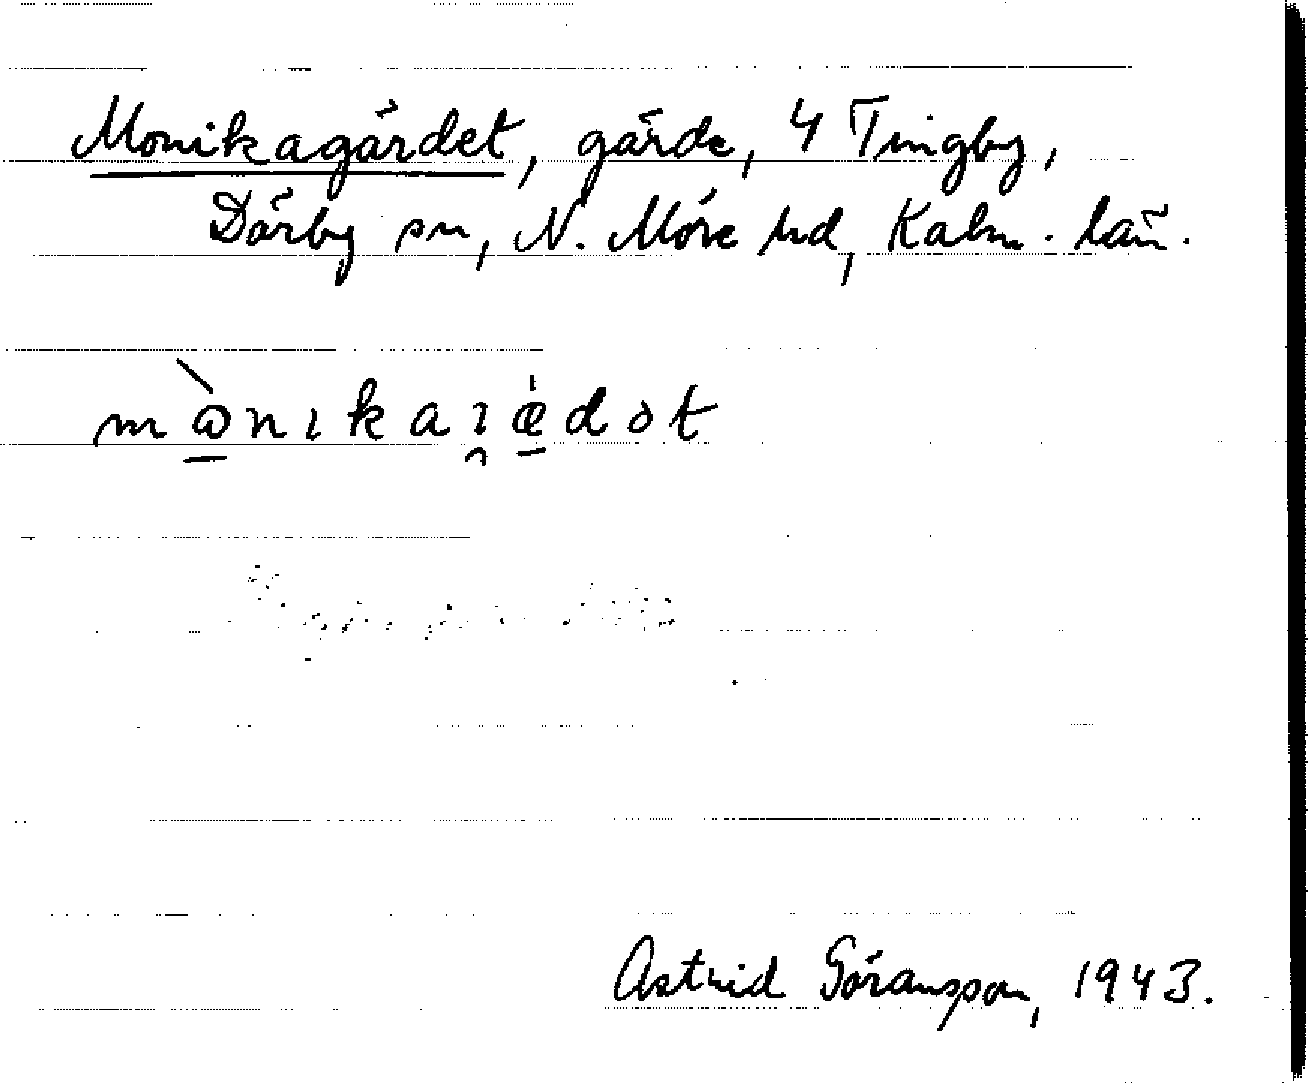 Monikagärdet, gärde, 4 Tingby,
Dörby sn, N. Möre hd, Kalm. län.
mònikaıædət
Astrid Göransson, 1943.